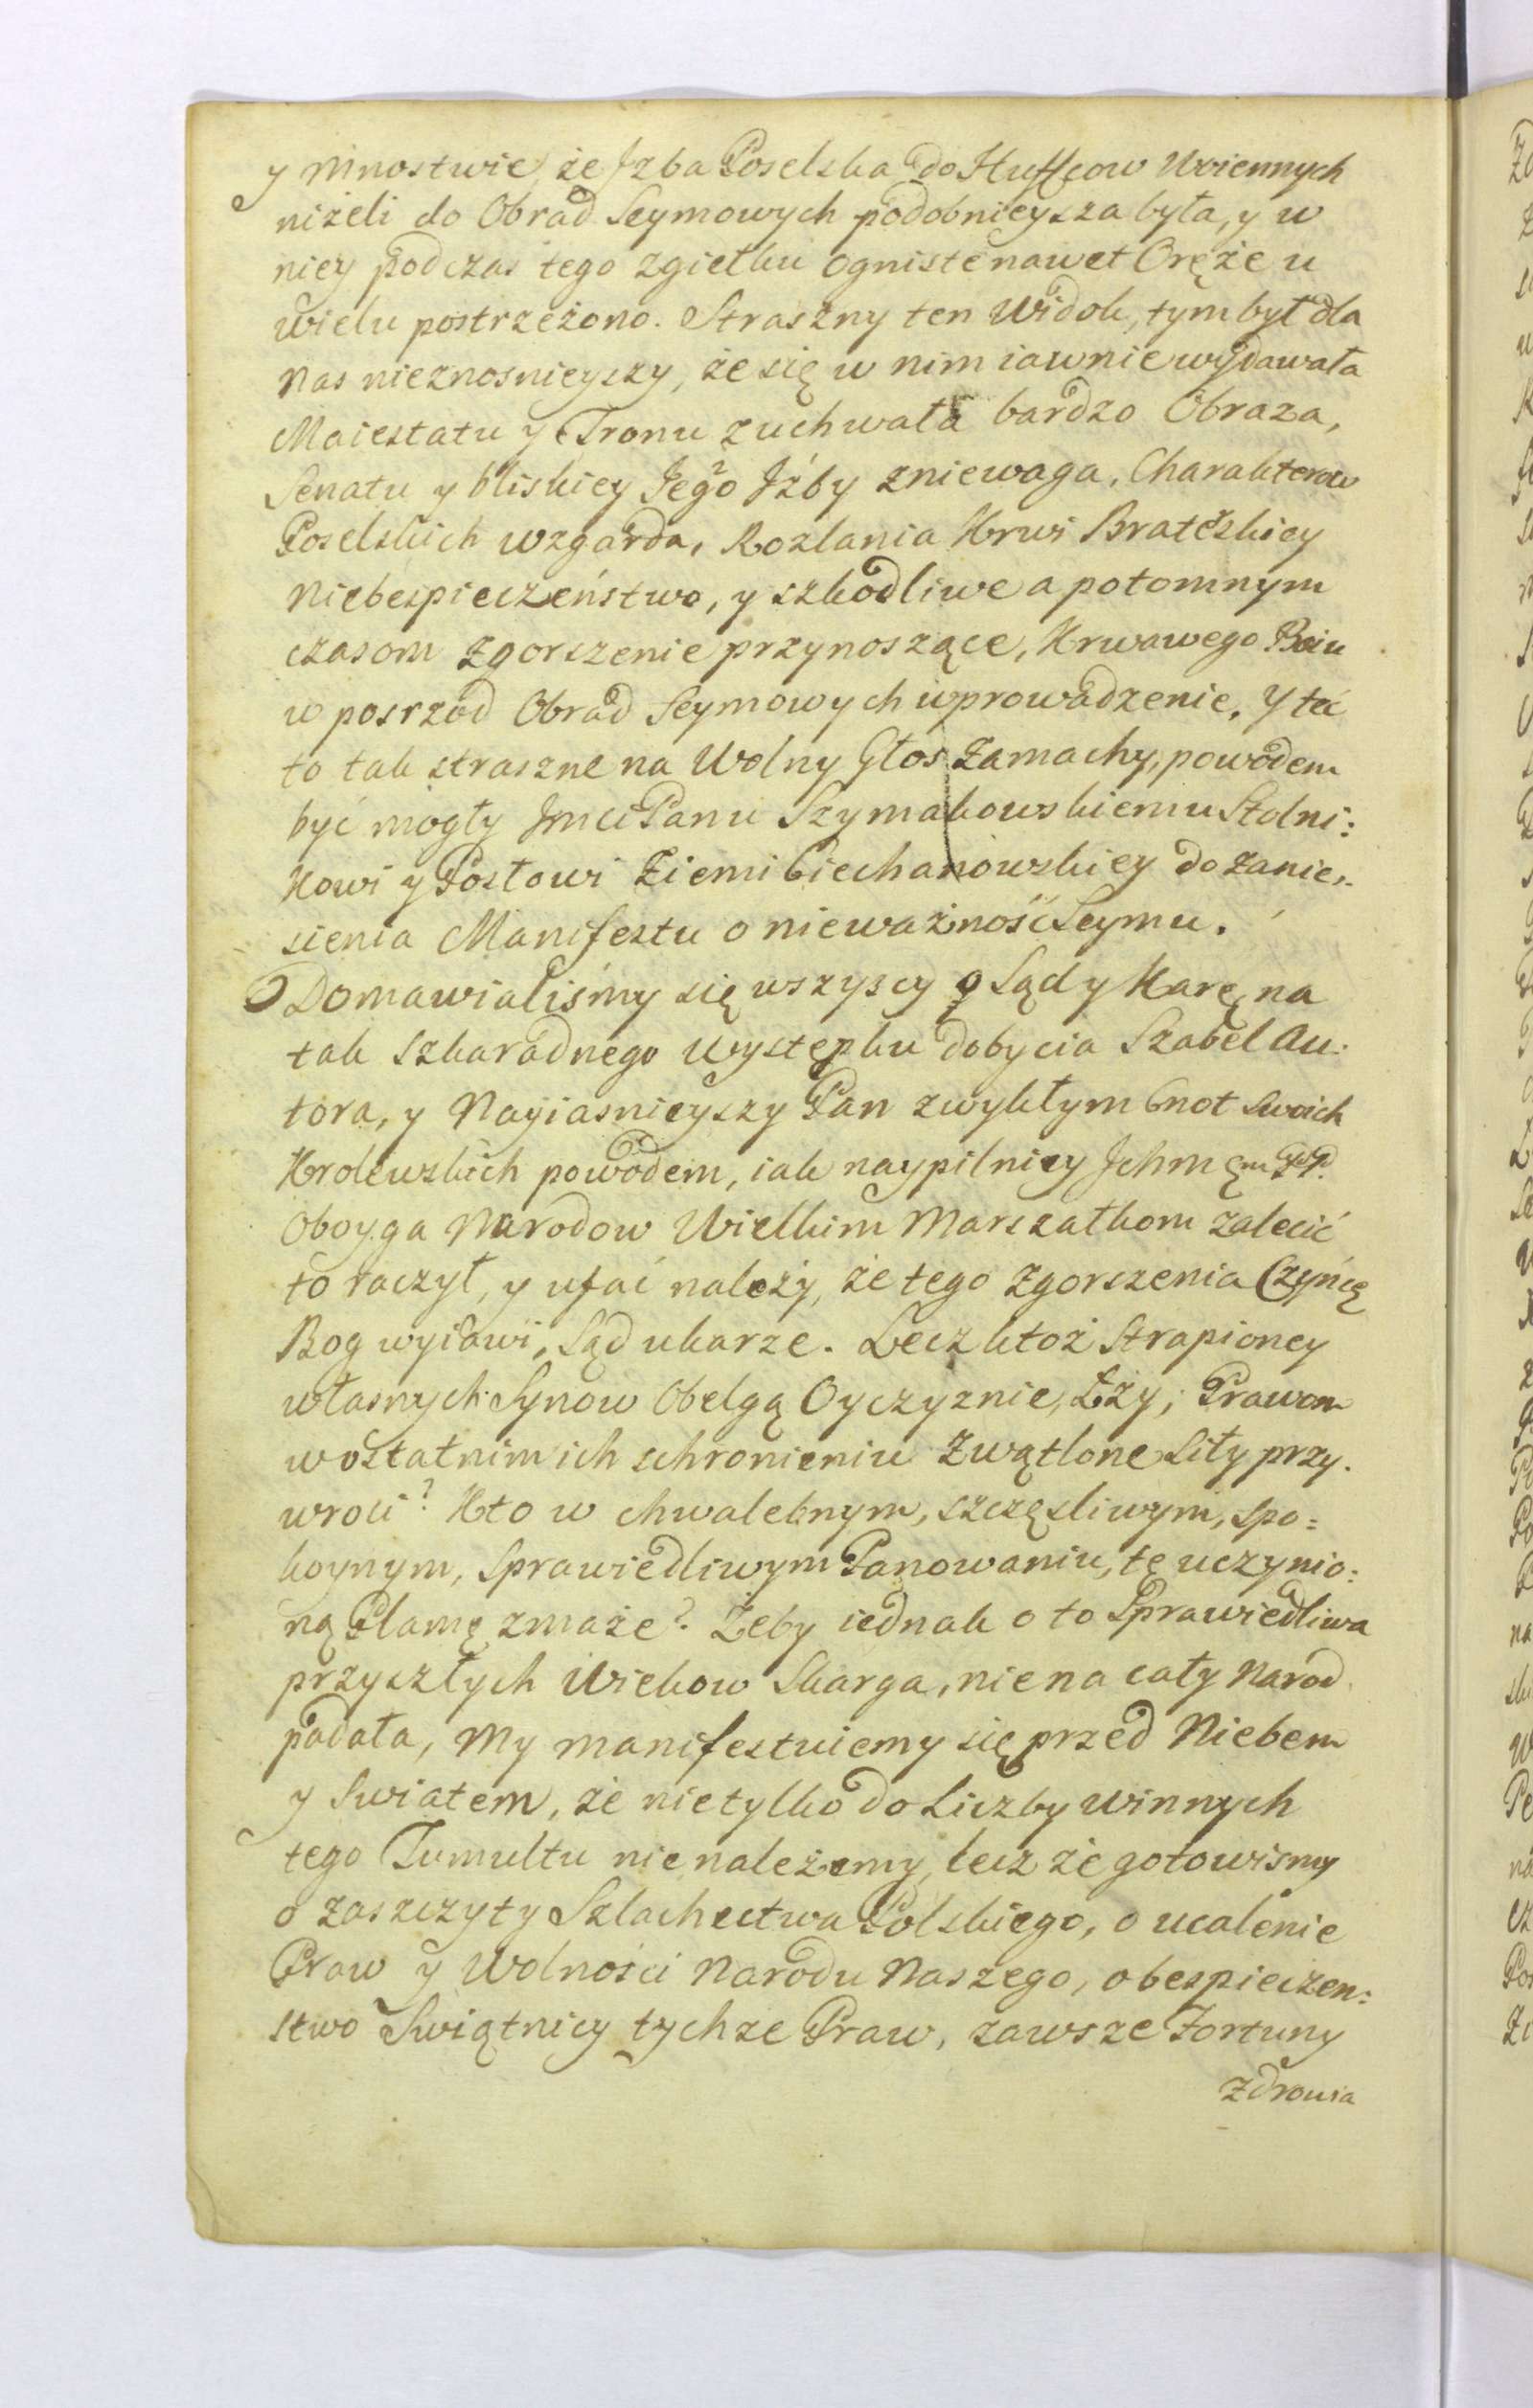 y Mnostwie, że Jzba Poselska do Huffcow Woiennych
niżeli do Obrad Seymowych podobnieysza była, y w
niey podczas tego zgiełku ogniste nawet Oręże u
wielu postrzeżono. Straszny ten Widok, tym był dla
Nas nieznosnieyszy, że się w nim iawnie wydawała
Maiestatu y Tronu zuchwała bardzo Obraza,
Senatu y bliskiey Jego Jzby zniewaga, Charakterow
Poselskich wzgarda, Rozlania Krwi Braterskiey
Niebespieczeństwo, y szkodliwe a potomnym
czasom zgorszenie przynoszące, Krwawego Boiu
w posrzod Obrad Seymowych wprowadzenie, Y teć
to tak straszne na Wolny Głos Zamachy, powodem
być mogły Jmci Panu Szymakowskiemu Stolni:
kowi y Posłowi Ziemi Ciechanowskiey do zanie:
sienia Manifestu o nieważność Seymu.
Domawialiśmy się wszyscy o Sąd y Karę na
tak szkaradnego występku dobycia Szabel Au:
tora, y Nayiasnieyszy Pan zwykłym Cnot Swoich
Krolewskich powodem, iak naypilniey Jchm PP.
Oboyga Narodow Wielkim Marszałkom zalecić
to raczył, y ufać należy, że tego Zgorszenia Czyńcę
Bog wyiawi, Sąd ukarze. Lecz ktoż Strapioney
własnych Synow Obelgą Oyczyznie, Łzy; Prawom
w ostatnim ich schronieniu Zwątlone Siły przy.
wroci? Kto w chwalebnym, szczęsliwym, spo=
koynym, Sprawiedliwym Panowaniu, tę uczynio:
ną Plamę zmaże? Żeby iednak o to Sprawiedliwa
przyszłych Wiekow Skarga, nie na cały Narod
padała, My manifestuiemy się przed Niebem
y Swiatem, że nietylko do Liczby winnych
tego Tumultu nie należemy, lecz że gotowismy
o zaszczyty Szlachectwa Polskiego, o ucalenie
Praw y Wolności Narodu Naszego, o bespieczen:
stwo Swiątnicy tychże Praw, zawsze Fortuny
Zdrowia